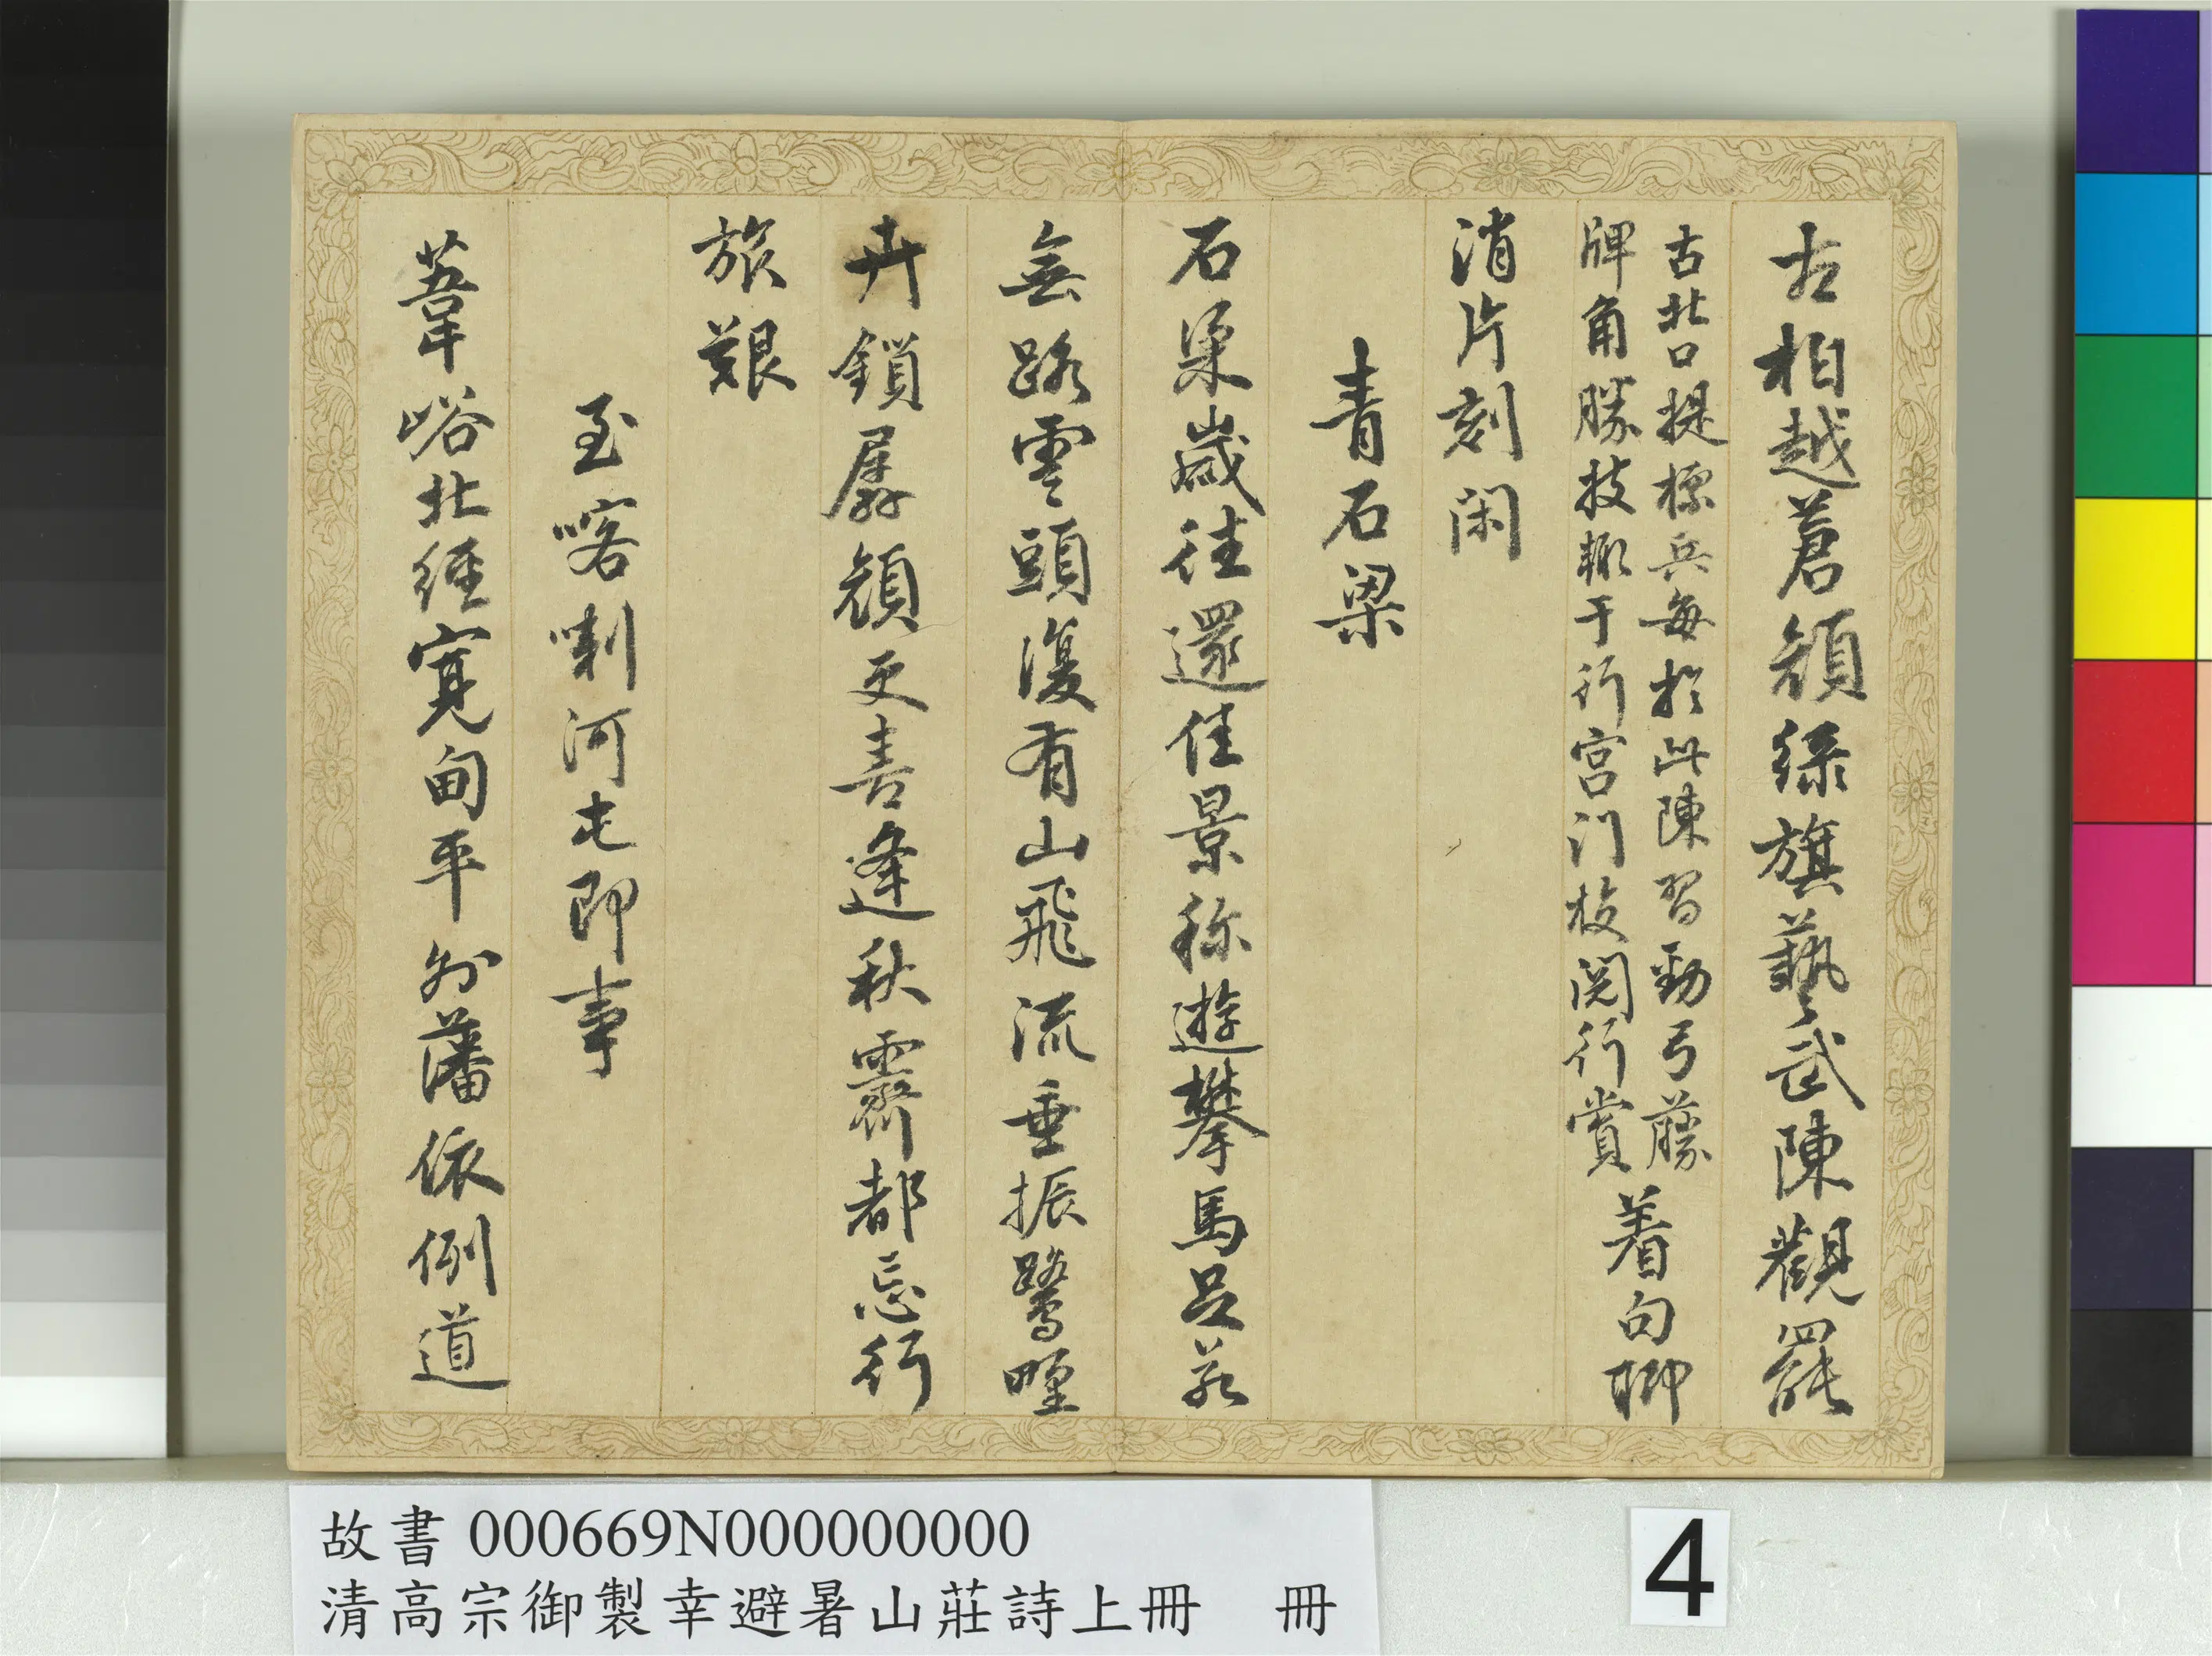 古柏越蒼顏綠旗藝武陳觀罷
古北口提標兵每於此陳習勁弓藤
牌角勝技輒于行宮門校閱行賞
着句聊
消片刻閑
青石梁
石梁歲往還佳景称遊攀馬足若
無路雲頭復有山飛流垂振鷺野
卉鎖孱顏更喜逢秋霽都忘行
旅艱
至喀喇河屯即事
葦峪北經寬甸平外藩依例道
故書 000669N000000000
清高宗御製幸避暑山莊詩上冊 冊
4